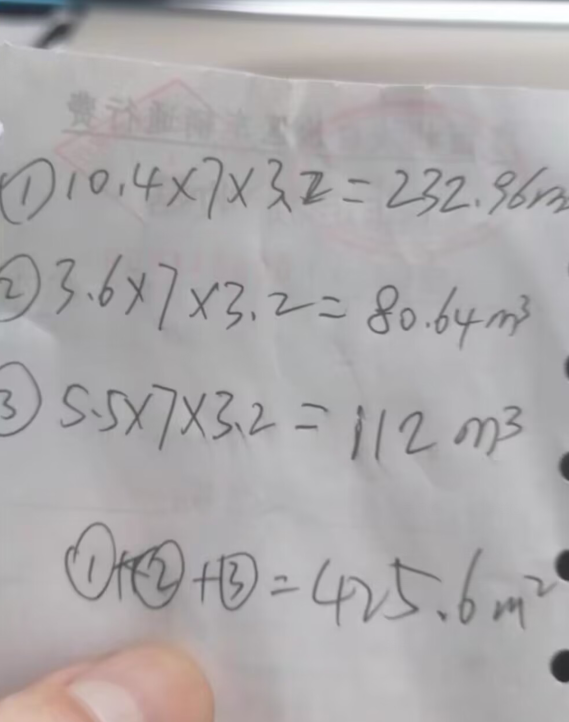 ①10.4×7×3.2=232.96m
②3.6×7×3.2=80.64m³
③5.5×7×3.2=112m³
①+②+③=425.6m²